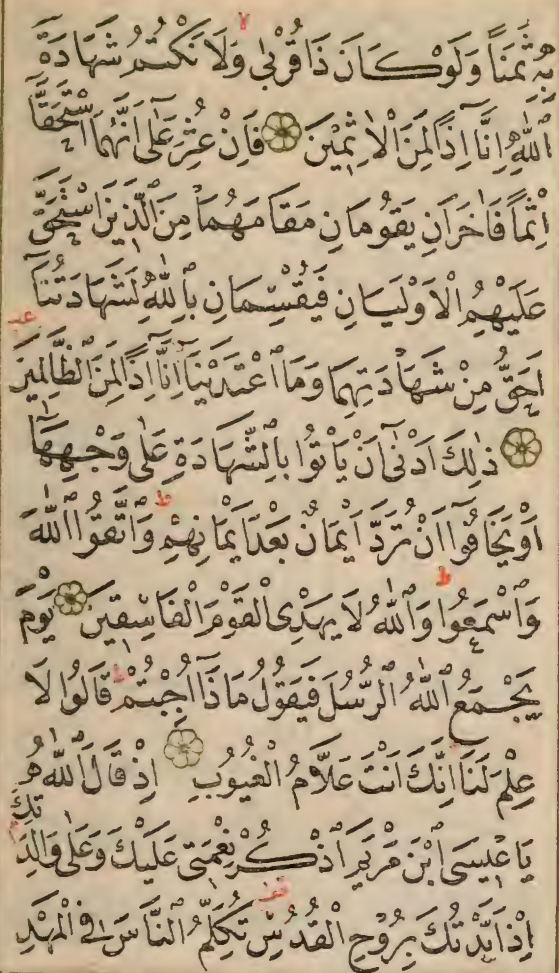 بِهِ ثَمَنًا وَلَوْ كَانَ ذَا قُرْبٰى وَلَا نَكْتُمُ شَهَادَةَ
اللّٰهِ اِنَّا اِذًا لَمِنَ الْاٰثِمٖينَ فَاِنْ عُثِرَ عَلٰٓى اَنَّهُمَا اسْتَحَقَّٓا
اِثْمًا فَاٰخَرَانِ يَقُومَانِ مَقَامَهُمَا مِنَ الَّذٖينَ اسْتَحَقَّ
عَلَيْهِمُ الْاَوْلَيَانِ فَيُقْسِمَانِ بِاللّٰهِ لَشَهَادَتُنَٓا
اَحَقُّ مِنْ شَهَادَتِهِمَا وَمَا اعْتَدَيْنَٓا اِنَّٓا اِذًا لَمِنَ الظَّالِمٖينَ
ذٰلِكَ اَدْنٰٓى اَنْ يَأْتُوا بِالشَّهَادَةِ عَلٰى وَجْهِهَٓا
اَوْ يَخَافُٓوا اَنْ تُرَدَّ اَيْمَانٌ بَعْدَ اَيْمَانِهِمْ وَاتَّقُوا اللّٰهَ
وَاسْمَعُوا وَاللّٰهُ لَا يَهْدِى الْقَوْمَ الْفَاسِقٖينَ يَوْمَ
يَجْمَعُ اللّٰهُ الرُّسُلَ فَيَقُولُ مَاذَٓا اُجِبْتُمْ قَالُوا لَا
عِلْمَ لَنَا اِنَّكَ اَنْتَ عَلَّامُ الْغُيُوبِ اِذْ قَالَ اللّٰهُ
يَا عٖيسَى ابْنَ مَرْيَمَ اذْكُرْ نِعْمَتٖى عَلَيْكَ وَعَلٰى وَالِدَتِكَ
اِذْ اَيَّدْتُكَ بِرُوحِ الْقُدُسِ تُكَلِّمُ النَّاسَ فِى الْمَهْدِ